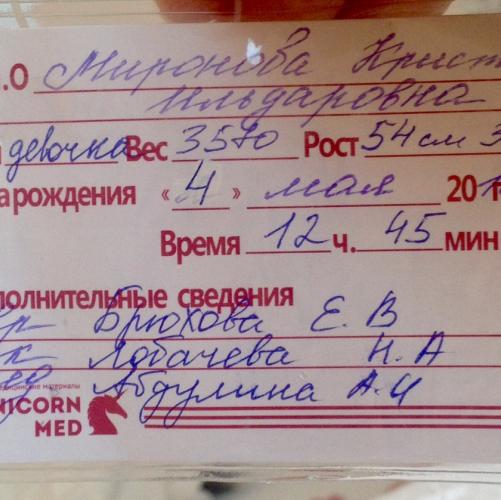 .О Миронова Крист
Ильдаровна
девочка Вес 3570 Рост 54 см
рождения « 4 » мая 201
Время 12 ч. 45 мин
полнительные сведения
Брюхова Е. В
Лобачева Н. А
едицинские материалы
Абдулина А. И
NICORN
MED